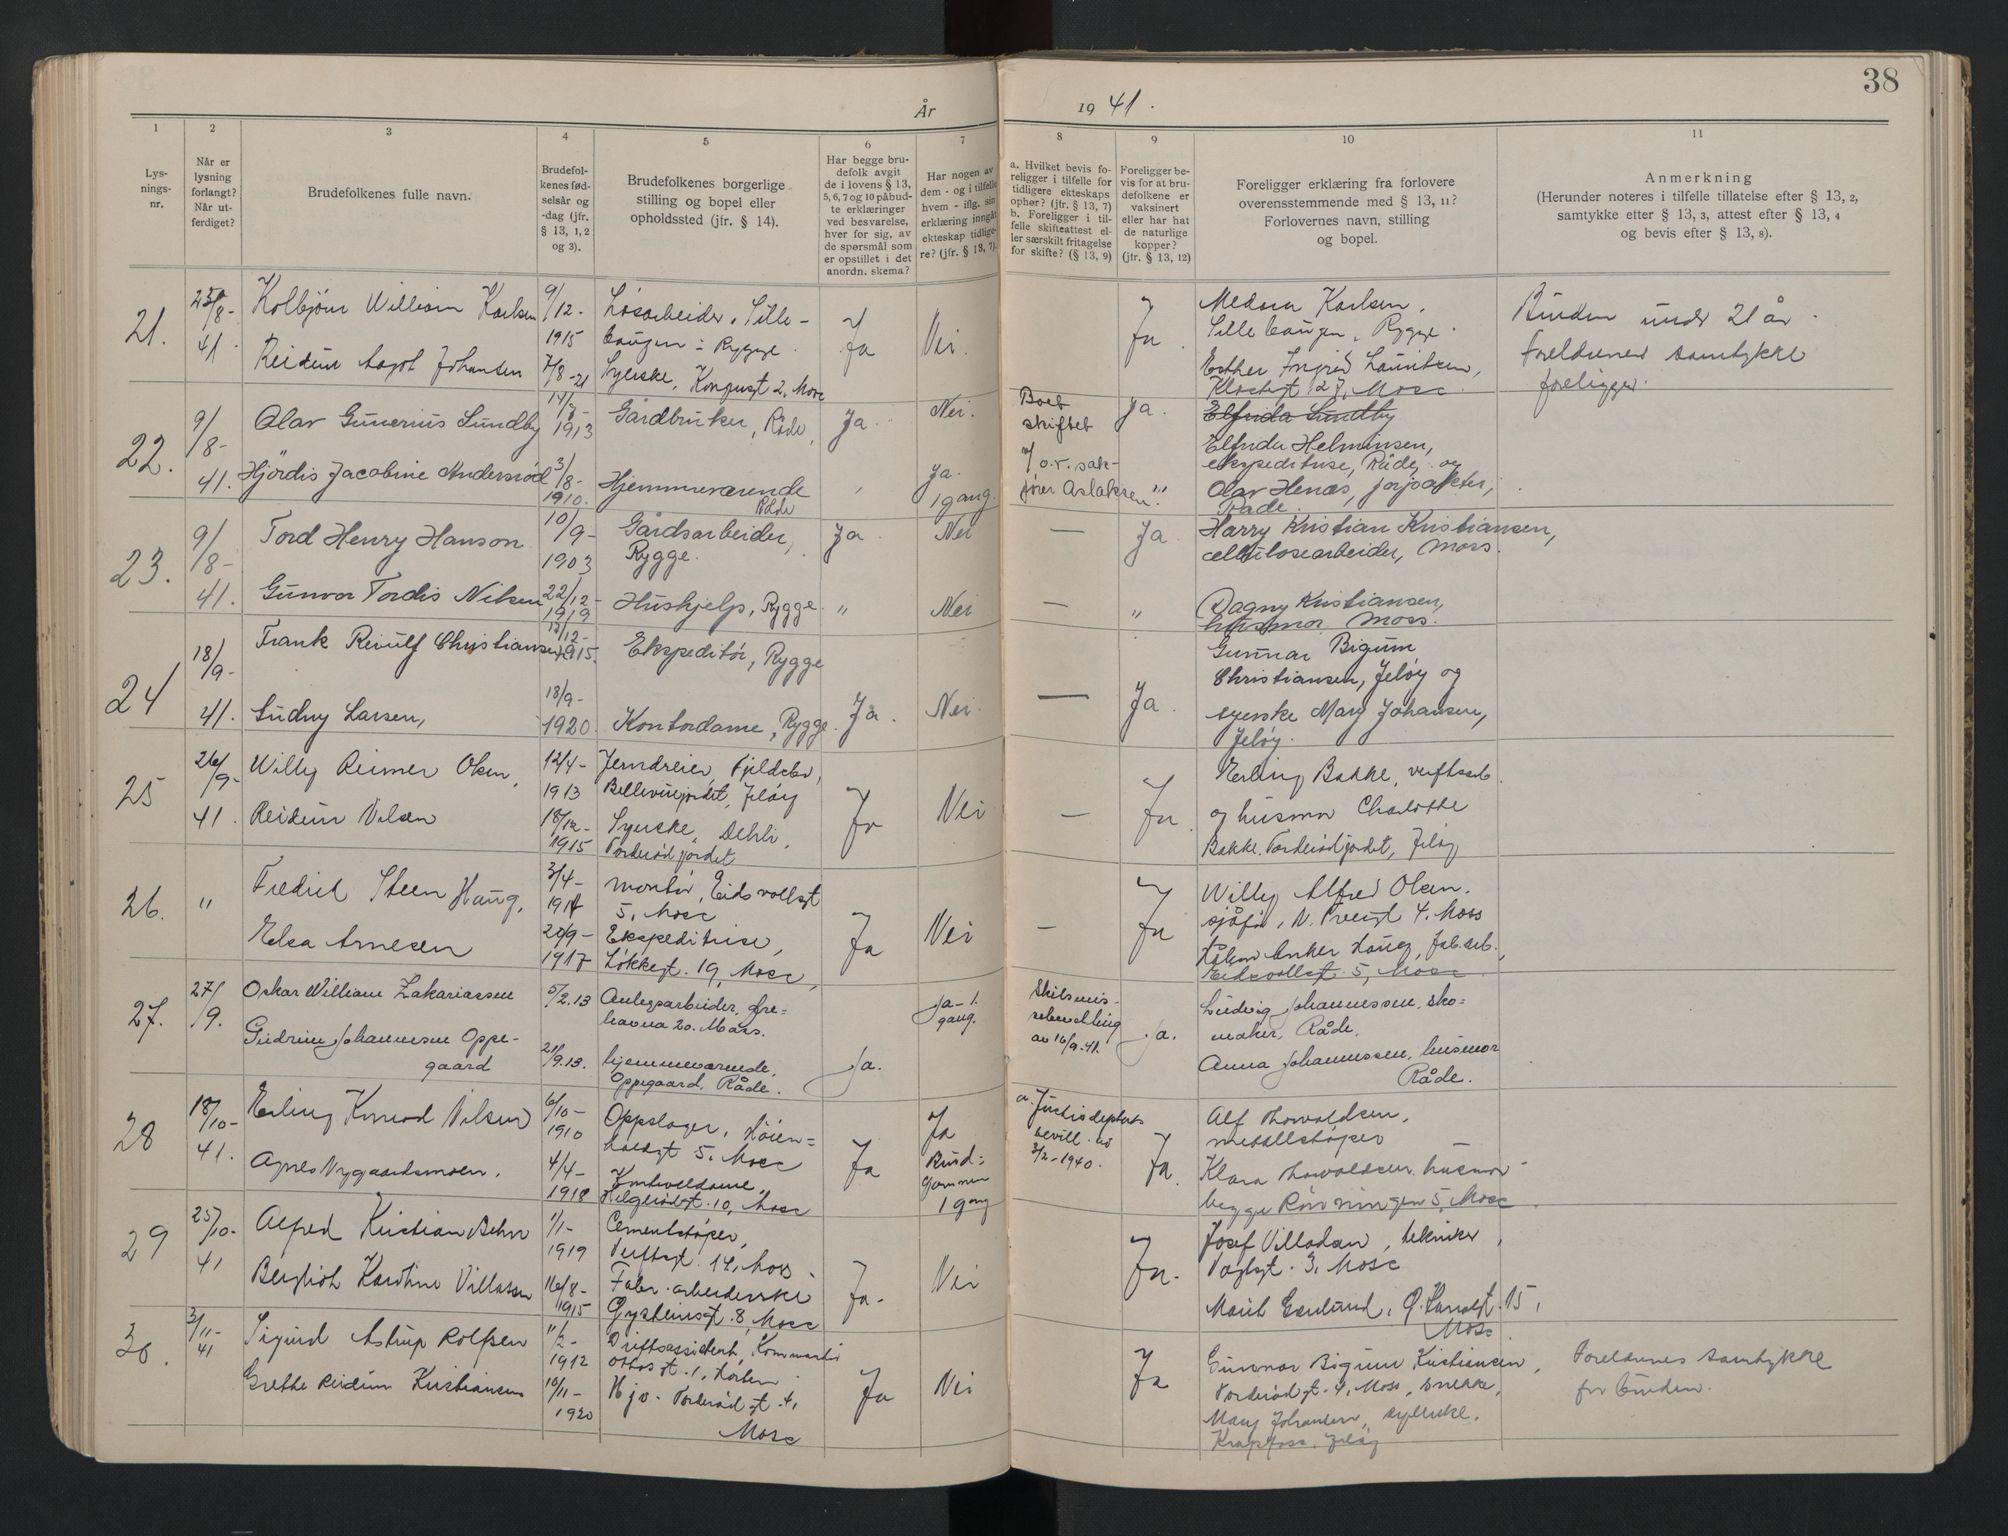 38
År 1941.
1 2 3 4 5 6 7 8 9 10 11
Lysningsnr.
Når er lysning forlangt? Når utferdiget?
Brudefolkenes fulle navn.
Brudefolkenes fødselsår og -dag (jfr. § 13, 1, 2 og 3).
Brudefolkenes borgerlige stilling og bopel eller opholdssted (jfr. § 14).
Har begge brudefolk avgit de i lovens § 13, 5, 6, 7 og 10 påbudte erklæringer ved besvarelse, hver for sig, av de spørsmål som er opstillet i det anordn. skema?
Har nogen av dem - og i tilfelle hvem - iflg. sin erklæring inngått ekteskap tidligere? (jfr. § 13, 7).
a. Hvilket bevis foreligger i tilfelle for tidligere ekteskaps ophør? (jfr. § 13, 7)
b. Foreligger i tilfelle skifteattest eller særskilt fritagelse for skifte? (§ 13, 9)
Foreligger bevis for at brudefolkene er vaksinert eller har hat de naturlige kopper? (jfr. § 13, 12)
Foreligger erklæring fra forlovere overensstemmende med § 13, 11? Forlovernes navn, stilling og bopel.
Anmerkning
(Herunder noteres i tilfelle tillatelse efter § 13, 2, samtykke efter § 13, 3, attest efter § 13, 4 og bevis efter § 13, 8).
21. 25/8-41. Kolbjörn William Karlsen 9/12-1915 Løsarbeider, Sillebaugen i Rygge. Ja Nei. Ja Medora Karlsen, Sillebaugen, Rygge. Bruden under 21 år.
Reidun Aagot Johansen 7/8-21 Syerske, Kongensgt 2, Moss Esther Ingrid Lauritsen, Klostergt 27, Moss. Foreldrenes samtykke foreligger.
22. 9/8-41. Olav Gunerius Sundby 1913 Gårdbruker, Råde, Ja Nei. Boet skiftet Ja. Elfrida Sundby
Elfrida Helminsen, ekspeditrise, Råde, og
Hjördis Jacobine Andersröd 3/8-1910. Hjemmeværende Råde Ja. 1 gang. v/ o.r. sakfører Aslaksen. " Olav Henæs, forpakter, Råde.
23. 9/8-41. Tord Henry Hanson 10/9-1903 Gårdsarbeider, Rygge. Ja Nei — Ja. Harry Kristian Kristiansen, cellulosearbeider, Moss.
Gunvor Tordis Nilsen 22/12-1919 Hushjelp, Rygge. " Nei — " Dagny Kristiansen, husmor Moss.
24 18/9-41. Frank Reiulf Christiansen 12/12-1915. Ekspeditör, Rygge Gunnar Bigum Christiansen, Jeløy og
Gudny Larsen, 18/9-1920. Kontordame, Rygge. Ja. Nei. — Ja. syerske Mary Johansen, Jeløy.
25 26/9-41. Willy Reimer Olsen, 12/4-1913 Jerndreier, Fjeldebo, Bellevuejordet, Jeløy Ja Nei — Ja Erling Bakke, verftsarb. og husmor Charlotte
Reidun Nilsen 18/12-1915 Syerske, Dehli, Torderødjordet Bakke. Torderødjordet, Jeløy
26. " Fredrik Steen Haug, 3/4-1914 montør, Eidsvollsgt 5, Moss Ja Nei — Ja Willy Alfred Olsen. sjåfør, N. Torvegt 4. Moss
Elsa Arnesen 20/9-1917 Ekspeditrise, Løkkegt. 19, Moss, Håkon Anker Haug, fab.arb., Eidsvollsgt 5, Moss.
27. 27/9. Oskar William Zakariassen 5/2.13 Anlegsarbeider, 20. Moss. Ja-1. gang. Skilsmissebevilling av 16/9.41. Ja. Ludvig Johannessen, skomaker, Råde.
Gudrun Johannessen Oppegaard 21/9.13. hjemmeværende, Oppegaard, Råde. Ja. Anna Johannessen, husmor Råde.
28 18/10-41. Erling Konrad Nilsen 6/10-1910 Oppslager, Høienhaldgt 5, Moss Ja Ja Brudgommen 1 gang a. Justisdeptets bevill. av 3/2-1940. Ja. Alf Thorvaldsen, metallstøper
Agnes Nygaardsmoen. 4/4-1918 Kontordame, Helgerødgt. 10, Moss Klara Thorvaldsen, husmor begge Rönningen 5, Moss
29 25/10-41 Alfred Kristian Behn 1/1-1919 Cementstøper, Verftsgt. 14, Moss. Ja. Nei Ja. Josef Villadsen, tekniker, Voglsgt. 3, Moss
Bergliot Karoline Villadsen 16/8-1915 Fabr. arbeiderske Gystheinsgt. 8, Moss Marit Enlund, Ø. Kanalgt. 15, Moss.
30. 3/11-41 Sigurd Astrup Rolfsen 11/2-1912 Driftsassistent, Kommandør Ottos gt. 1, Horten. Ja Nei Ja Gunnar Bigum Kristiansen, Torderødgt. 4, Moss, snekker, Foreldrenes samtykke for bruden.
Grethe Reidun Kristiansen 10/11-1920 Hjv. Torderødgt. 4, Moss Mary Johansen, syerske, Krapfoss, Jeløy